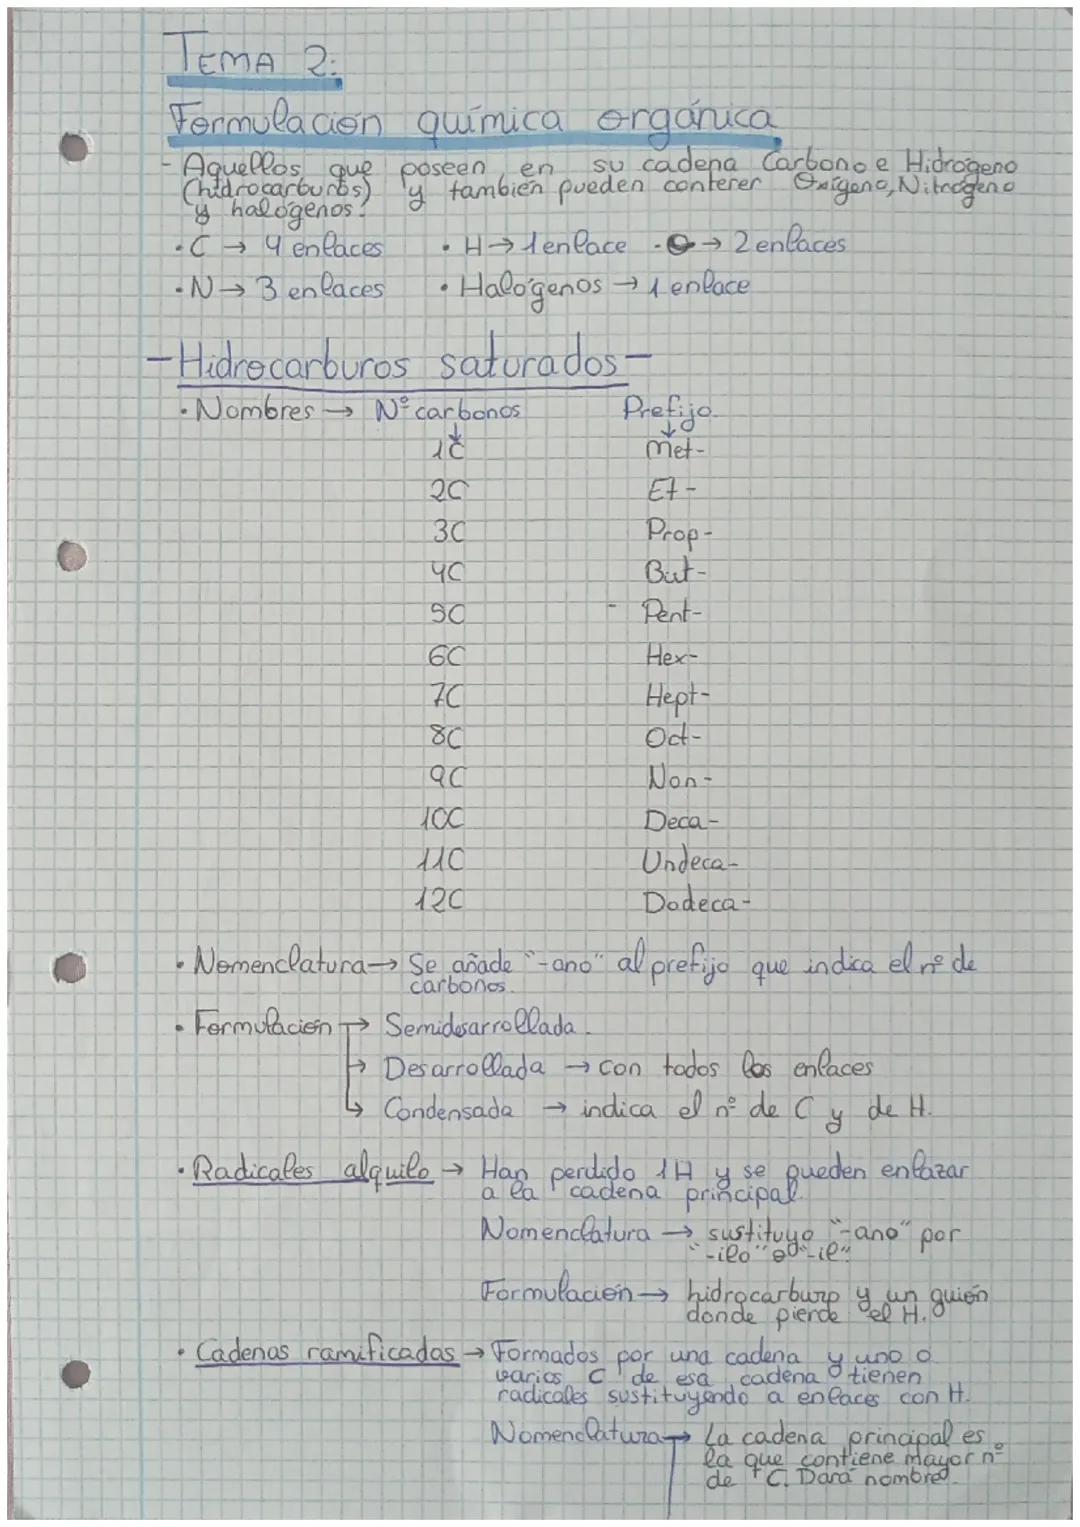 TEMA 2:
Formulación química orgánica
- Aquellos que poseen en su cadena Carbono e Hidrógeno
(hidrocarburos) y también pueden contener Oxígeno, Nitrógeno
y halógenos.
· C → 4 enlaces · H → 1 enlace · O → 2 enlaces
· N → 3 enlaces · Halógenos → 1 enlace
- Hidrocarburos saturados -
· Nombres → Nº carbonos Prefijo
↓ ↓
1C Met-
2C Et-
3C Prop-
4C But-
5C Pent-
6C Hex-
7C Hept-
8C Oct-
9C Non-
10C Deca-
11C Undeca-
12C Dodeca-
· Nomenclatura → Se añade "-ano" al prefijo que indica el nº de
carbonos.
· Formulación → Semidesarrollada.
→ Desarrollada → con todos los enlaces
→ Condensada → indica el nº de C y de H.
· Radicales alquilo → Han perdido 1H y se pueden enlazar
a la cadena principal.
Nomenclatura → sustituyo "-ano" por
"-ilo" o "-il".
Formulación → hidrocarburo y un guión
donde pierde el H.
· Cadenas ramificadas → Formados por una cadena y uno o
varios C de esa cadena tienen
radicales sustituyendo a enlaces con H.
Nomenclatura → La cadena principal es
la que contiene mayor nº
de C. Dará nombre.